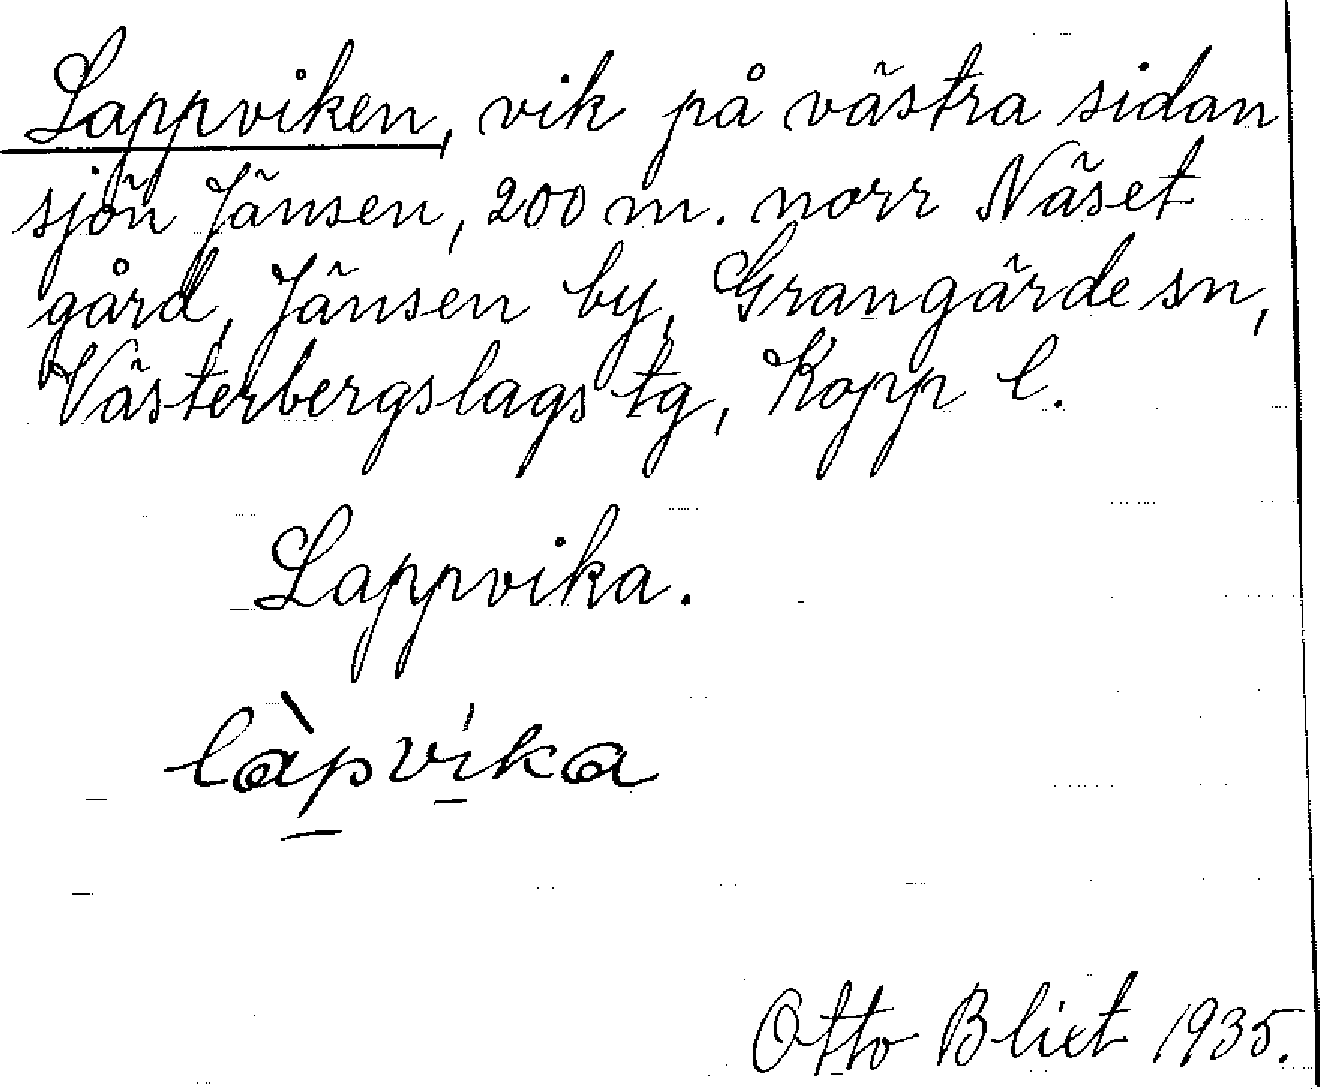 Lappviken, vik på västra sidan
sjön Jänsen, 200 m. norr Näset
gård, Jänsen by, Grangärde sn,
Västerbergslags tg, Kopp l.
Lappvika.
làpvíka
Otto Blixt 1935.